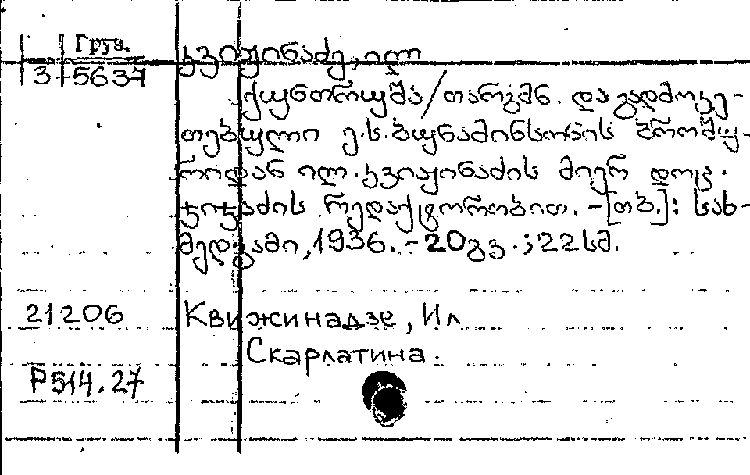 Груз.
3 5637
კვიჟინაძე, ილ
ქუნთრუშა/თარგმნ. და გადმოკე-
თებული ე.ს.ბუნამინსონის ბროშუ-
რიდან ილ. კვიჟინაძის მიერ დოც.
ჯიქაძის რედაქტორობით. -[თბ.]: სახ-
მედგამი, 1936. - 20გვ.; 22სმ.
21206 Квижинадзе, Ил
Скарлатина.
Р514.27